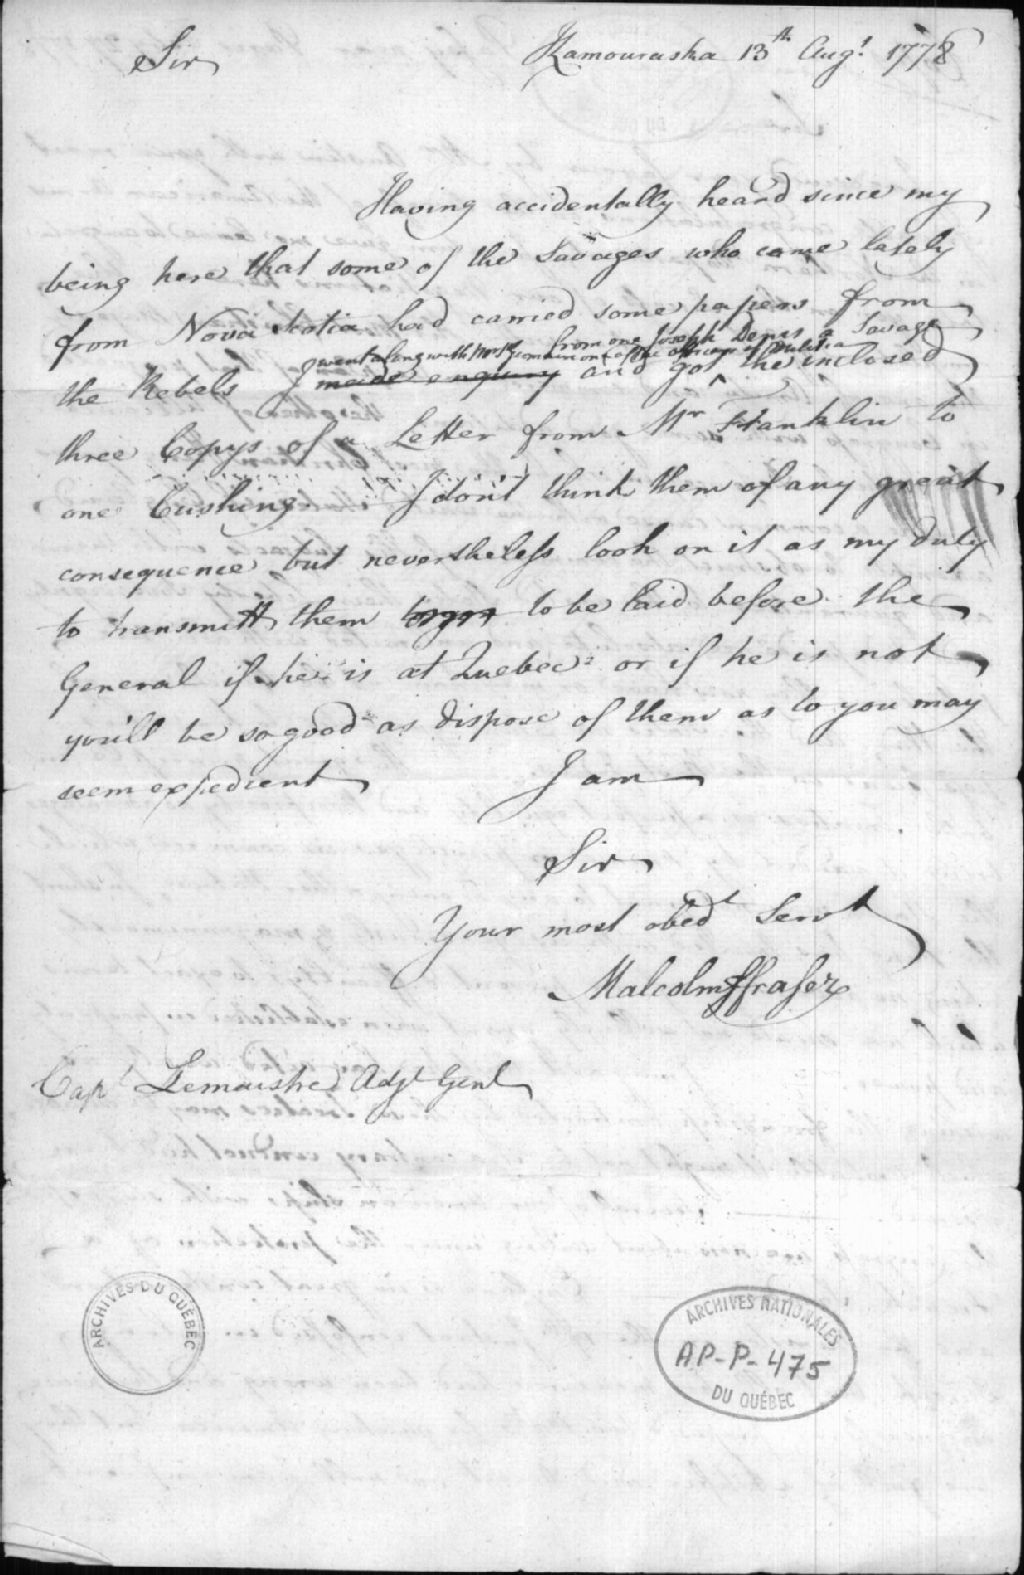 Sir
Kamouraska 13th Augt 1778
Having accidentally heard since my
being here that some of the Savages who came lately
from Nova Scotia had carried some papers from
from one Joseph Denis a Savage
I went along with one of the officers of Militia
the Rebels I made enquiry and got the inclosed
three Copys of a Letter from Mr Franklin to
one Cushing. I don't think them of any great
consequence but nevertheless look on it as my duty
to transmitt them to be laid before the
General if he is at Quebec: or if he is not
you'll be so good as dispose of them as to you may
seem expedient I am
Sir
Your most obedt Servt
Malcolm ffraser
Capt Lemaistre Adjt Genl
ARCHIVES DU QUÉBEC
ARCHIVES NATIONALES
AP-P-475
DU QUÉBEC